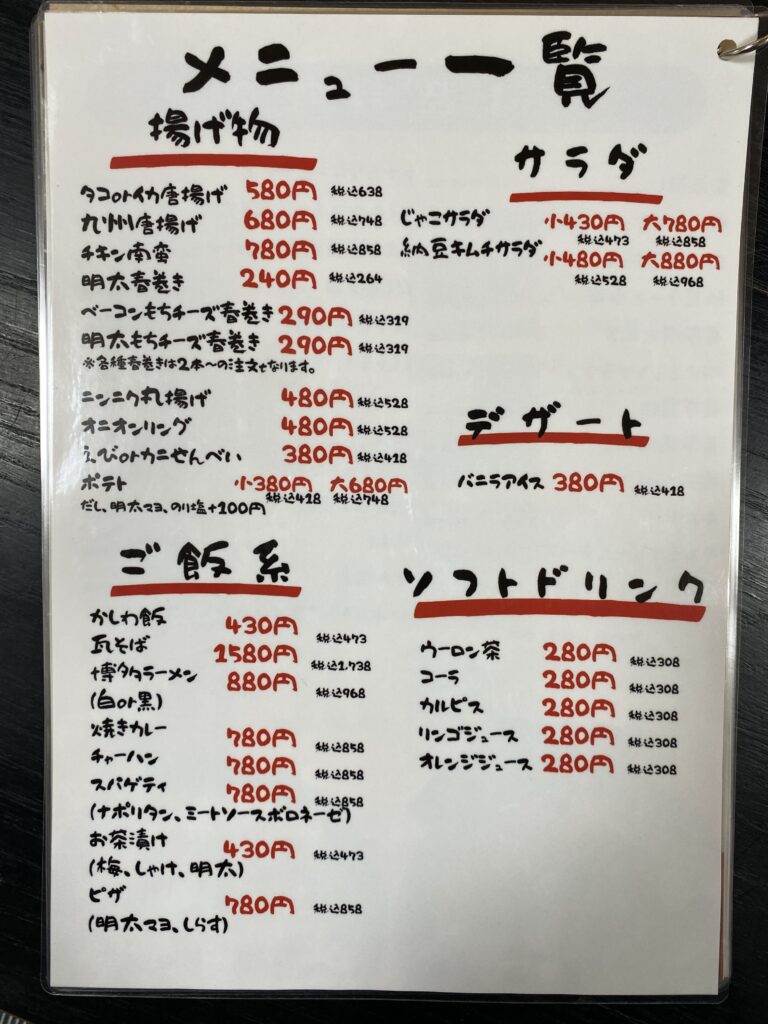 メニュー一覧
揚げ物
タコorイカ唐揚げ 580円 税込638
九州唐揚げ 680円 税込748
チキン南蛮 780円 税込858
明太春巻き 240円 税込264
ベーコンもちチーズ春巻き 290円 税込319
明太もちチーズ春巻き 290円 税込319
※各種春巻きは2本〜の注文となります。
ニンニク丸揚げ 480円 税込528
オニオンリング 480円 税込528
えびorカニせんべい 380円 税込418
ポテト 小380円 大680円
税込418 税込748
だし、明太マヨ、のり塩+100円
サラダ
じゃこサラダ 小430円 大780円
税込473 税込858
納豆キムチサラダ 小480円 大880円
税込528 税込968
デザート
バニラアイス 380円 税込418
ご飯系
かしわ飯 430円 税込473
瓦そば 1580円 税込1,738
博多ラーメン 880円 税込968
(白or黒)
焼きカレー 780円 税込858
チャーハン 780円 税込858
スパゲティ 780円 税込858
(ナポリタン、ミートソースボロネーゼ)
お茶漬け 430円 税込473
(梅、しゃけ、明太)
ピザ 780円 税込858
(明太マヨ、しらす)
ソフトドリンク
ウーロン茶 280円 税込308
コーラ 280円 税込308
カルピス 280円 税込308
リンゴジュース 280円 税込308
オレンジジュース 280円 税込308